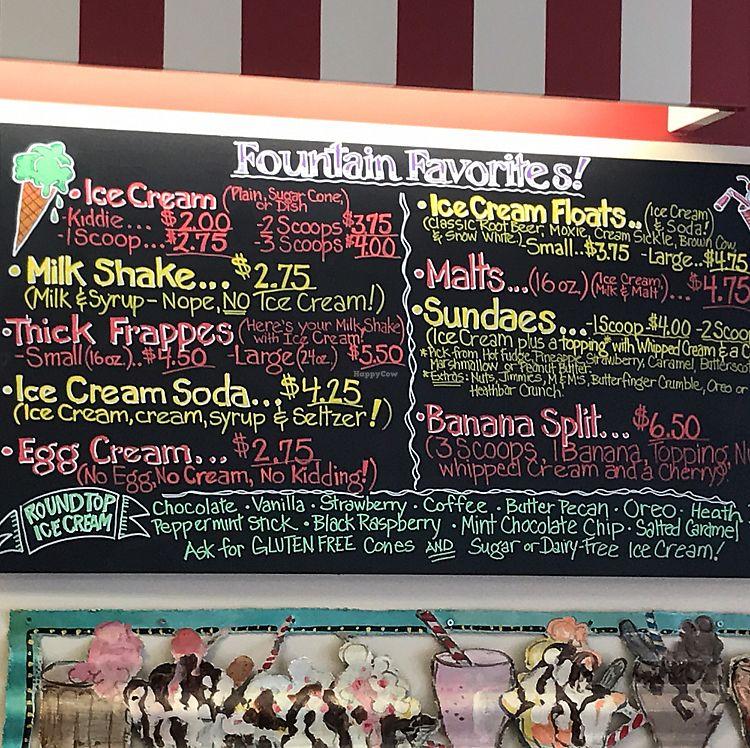 Fountain Favorites!
• Ice Cream (Plain, Sugar Cone, or Dish)
-Kiddie... $2.00 -2 Scoops $3.75
-1 Scoop... $2.75 -3 Scoops $4.00
• Milk Shake... $2.75
(Milk & Syrup - Nope, NO Ice Cream!)
• Thick Frappes (Here's your Milk Shake with Ice Cream!)
-Small (16 oz.).. $4.50 -Large (24 oz.) $5.50
• Ice Cream Soda... $4.25
(Ice Cream, cream, syrup & Seltzer!)
• Egg Cream... $2.75
(No Egg, No Cream, No Kidding!)
• Ice Cream Floats.. (Ice Cream & Soda!)
(Classic Root Beer, Moxie, Cream Sickle, Brown Cow,
& Snow White) -Small..$3.75 -Large..$4.75
• Malts... (16 oz.) (Ice Cream, Milk & Malt)... $4.75
• Sundaes... -1 Scoop $4.00 -2 Scoo
(Ice Cream plus a topping* with Whipped Cream & a C
*Pick from, Hot Fudge, Pineapple, Strawberry, Caramel, Butterscot
Marshmallow or Peanut Butter.
*Extras: Nuts, Jimmies, M&M's, Butterfinger Crumble, Oreo or
Heathbar Crunch.
• Banana Split... $6.50
(3 Scoops, 1 Banana, Topping, Nu
whipped Cream and a Cherry)
ROUND TOP
ICE CREAM
Chocolate • Vanilla • Strawberry • Coffee • Butter Pecan • Oreo • Heath
Peppermint Stick • Black Raspberry • Mint Chocolate Chip • Salted Caramel
Ask for GLUTEN FREE Cones AND Sugar or Dairy-Free Ice Cream!
HappyCow